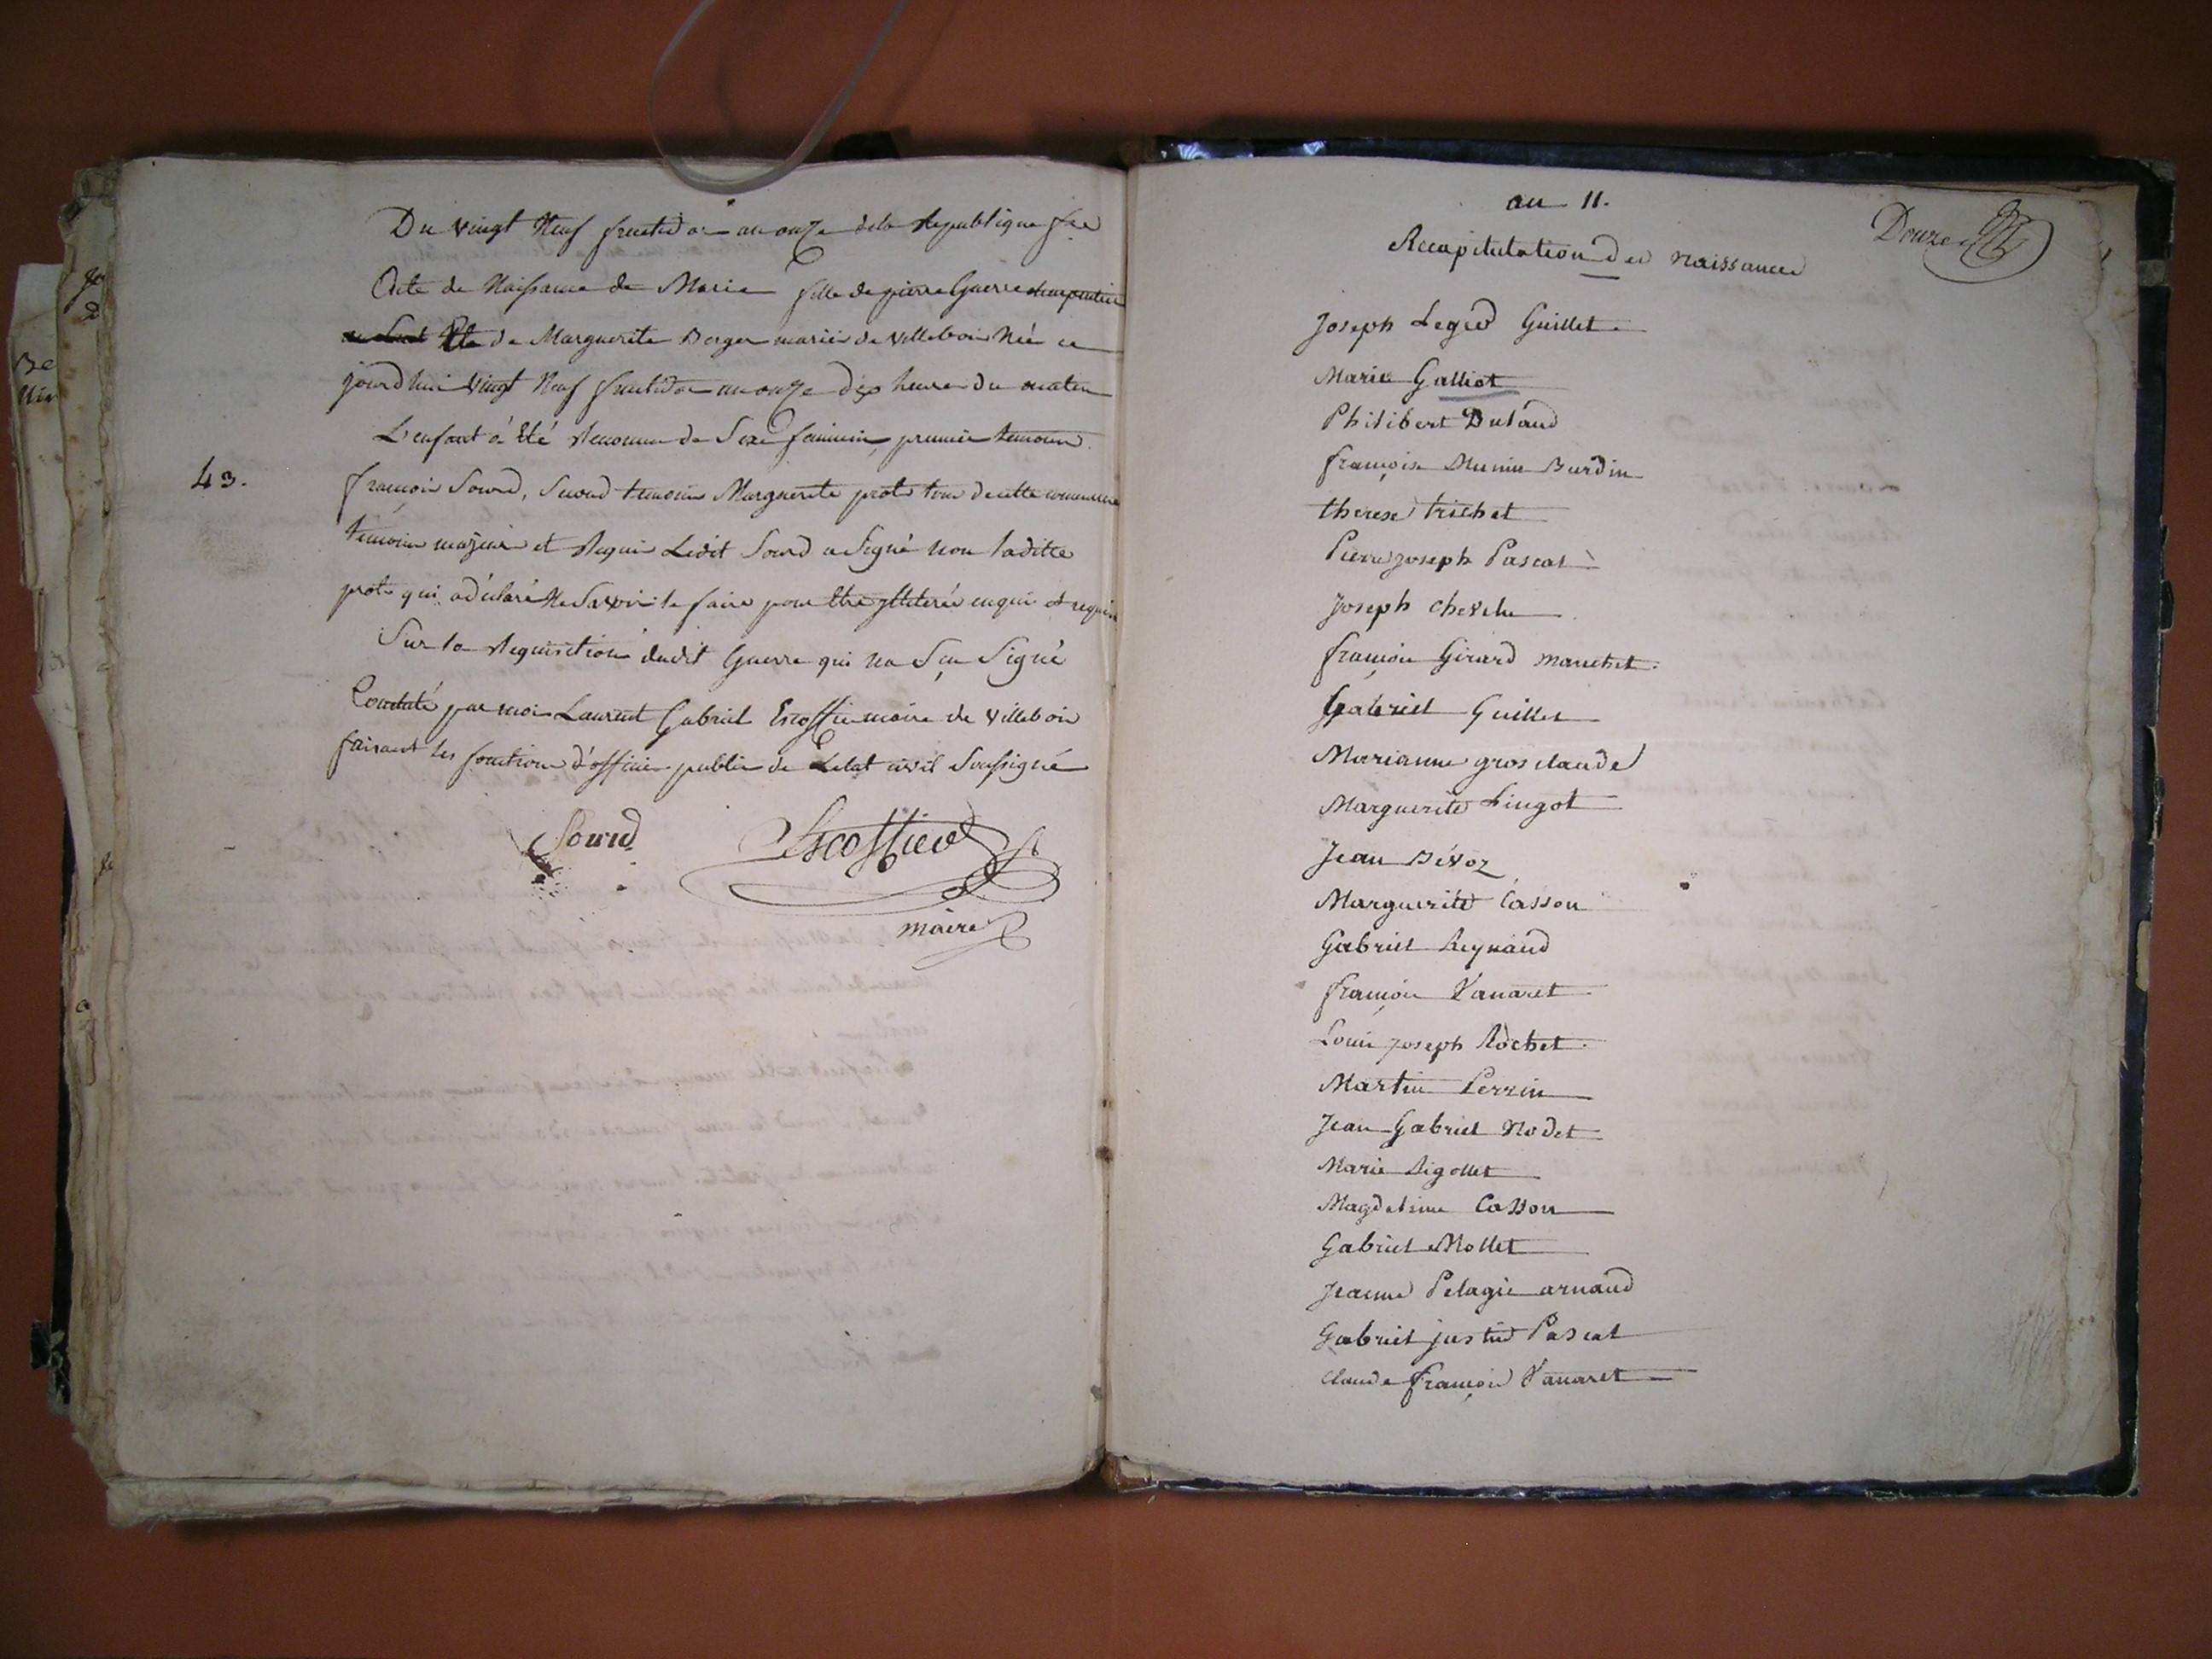 Du vingt Neuf fructidor an onze de la Republique fse
Acte de Naissance de Marie fille de pierre Guerre charpentier
Et de Marguerite Berger mariés de villebois Née ce
jourdhui vingt Neuf fructidor an onze dix heure du matin
L'enfant à Eté Reconnu de Sexe feminin, premier temoin
43.
françois Sourd, Second temoin Marguerite prots tous de cette commune
temoins majeurs et Requis Ledit Sourd a Signé non laditte
prots qui a déclaré Ne Savoir le faire pour Etre illiterée enquis et requis
Sur la Requisition dudit Guerre qui na Sçu Signé
Constaté par moi Laurent Gabriel Escoffier maire de Villebois
faisant les fonctions d'officier public de Letat civil Soussigné
Sourd Escoffier
maire
an 11.
Douze
Recapitulation des naissances
Joseph Leger Guillet
Marie Galliot
Philibert Dulaud
françoise Munin Burdin
therese trichet
Pierre joseph Pascal
Joseph chevelu
françois Girard manchet
Gabriel Guillet
Marianne grosclaude
Marguerite Lingot
Jean Bévoz
Marguerite Casson
Gabriel Reynaud
françois Vanaret
Louis joseph Rochet
Martin Perrin
Jean Gabriel Nodet
Marie Rigollet
Magdeleine Casson
Gabriel Mollet
Jeanne Pelagie arnaud
Gabriel justin Pascal
claude françois Vanaret